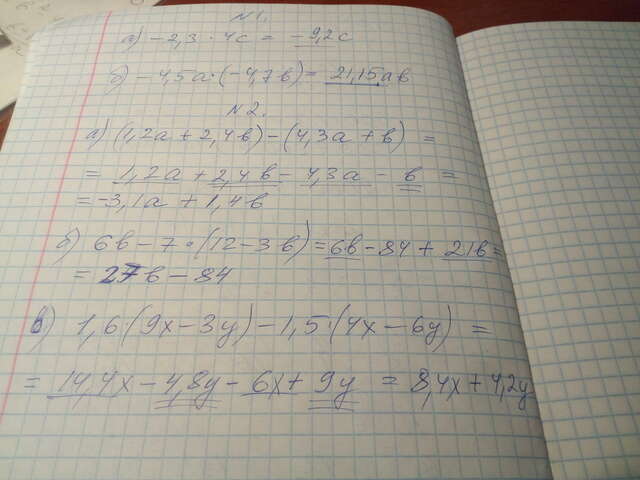 N1.
а) -2,3 · 4c = -9,2c
б) -4,5a·(-4,7в)= 21,15aв
N2.
а) (1,2a + 2,4в)-(4,3a + в) =
= 1,2a + 2,4в - 4,3a - в =
= -3,1a + 1,4в
б) 6в - 7·(12-3в)=6в-84 + 21в =
= 27в - 84
в) 1,6·(9x-3y)-1,5·(4x-6y) =
= 14,4x - 4,8y - 6x + 9y = 8,4x + 4,2y